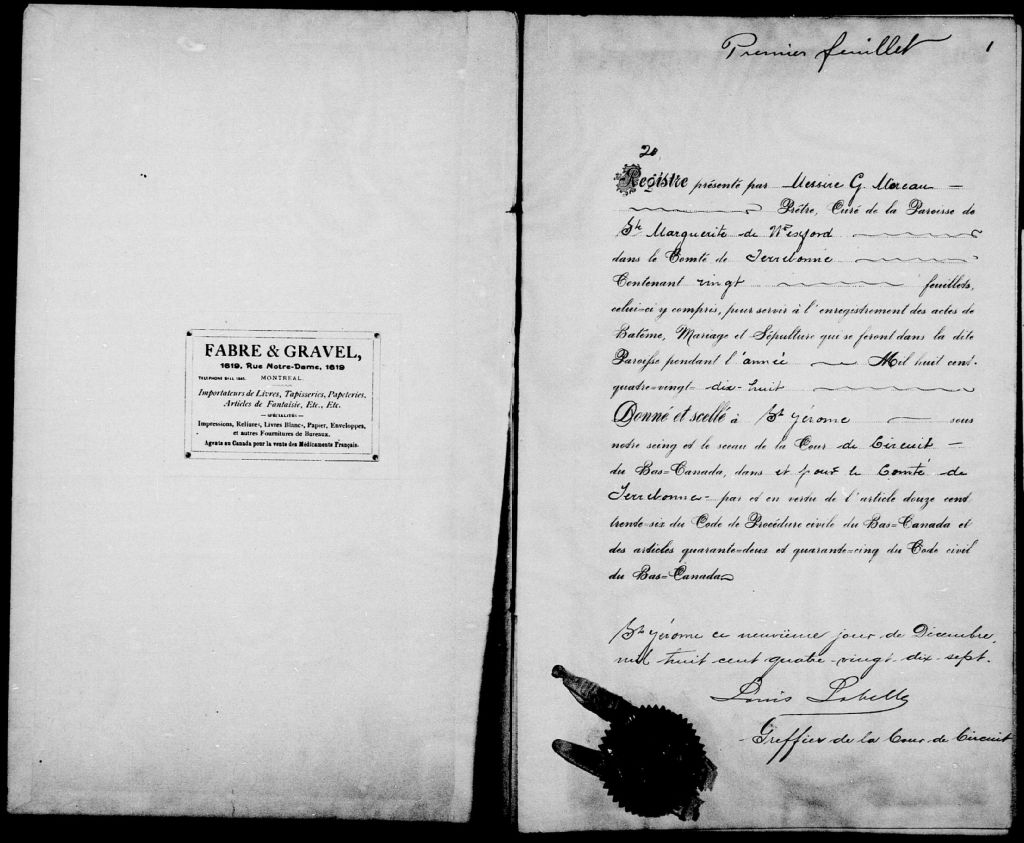 FABRE & GRAVEL,
1619, Rue Notre-Dame, 1619
TELEPHONE BELL
MONTREAL.
Importateurs de Livres, Tapisseries, Papeteries,
Articles de Fantaisie, Etc., Etc.
— SPÉCIALITÉS —
Impressions, Reliures, Livres Blancs, Papier, Enveloppes,
et autres Fournitures de Bureaux.
Agents au Canada pour la vente des Médicaments Français.
Premier feuillet 1
20
Registre présenté par Messire G. Moreau
Prêtre, Curé de la Paroisse de
Ste Marguerite de Wexford
dans le Comté de Terrebonne
Contenant vingt feuillets,
celui=ci y compris, pour servir à l'enregistrement des actes de
Batême, Mariage et Sépulture qui se feront dans la dite
Paroisse pendant l'année Mil huit cent-
quatre=vingt-dix-huit
Donné et scellé à St Jérome sous
notre seing et le sceau de la Cour de Circuit
du Bas=Canada, dans et pour le Comté de
Terrebonne par et en vertu de l'article douze cent
trente=six du Code de Procédure civile du Bas=Canada et
des articles quarante=deux et quarante=cinq du Code civil
du Bas=Canada
St Jérome ce neuvième jour de Décembre,
mil huit cent quatre-vingt-dix-sept.
Louis Labelle
Greffier de la Cour de Circuit